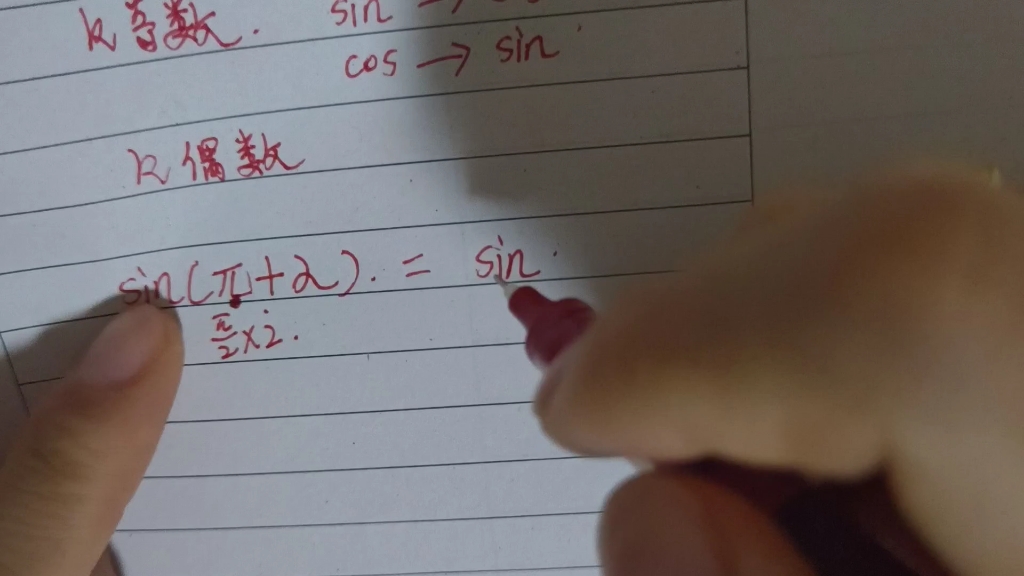 k 奇数. sin →
cos → sin
k 偶数
sin(π+2). = sin
π/2×2.